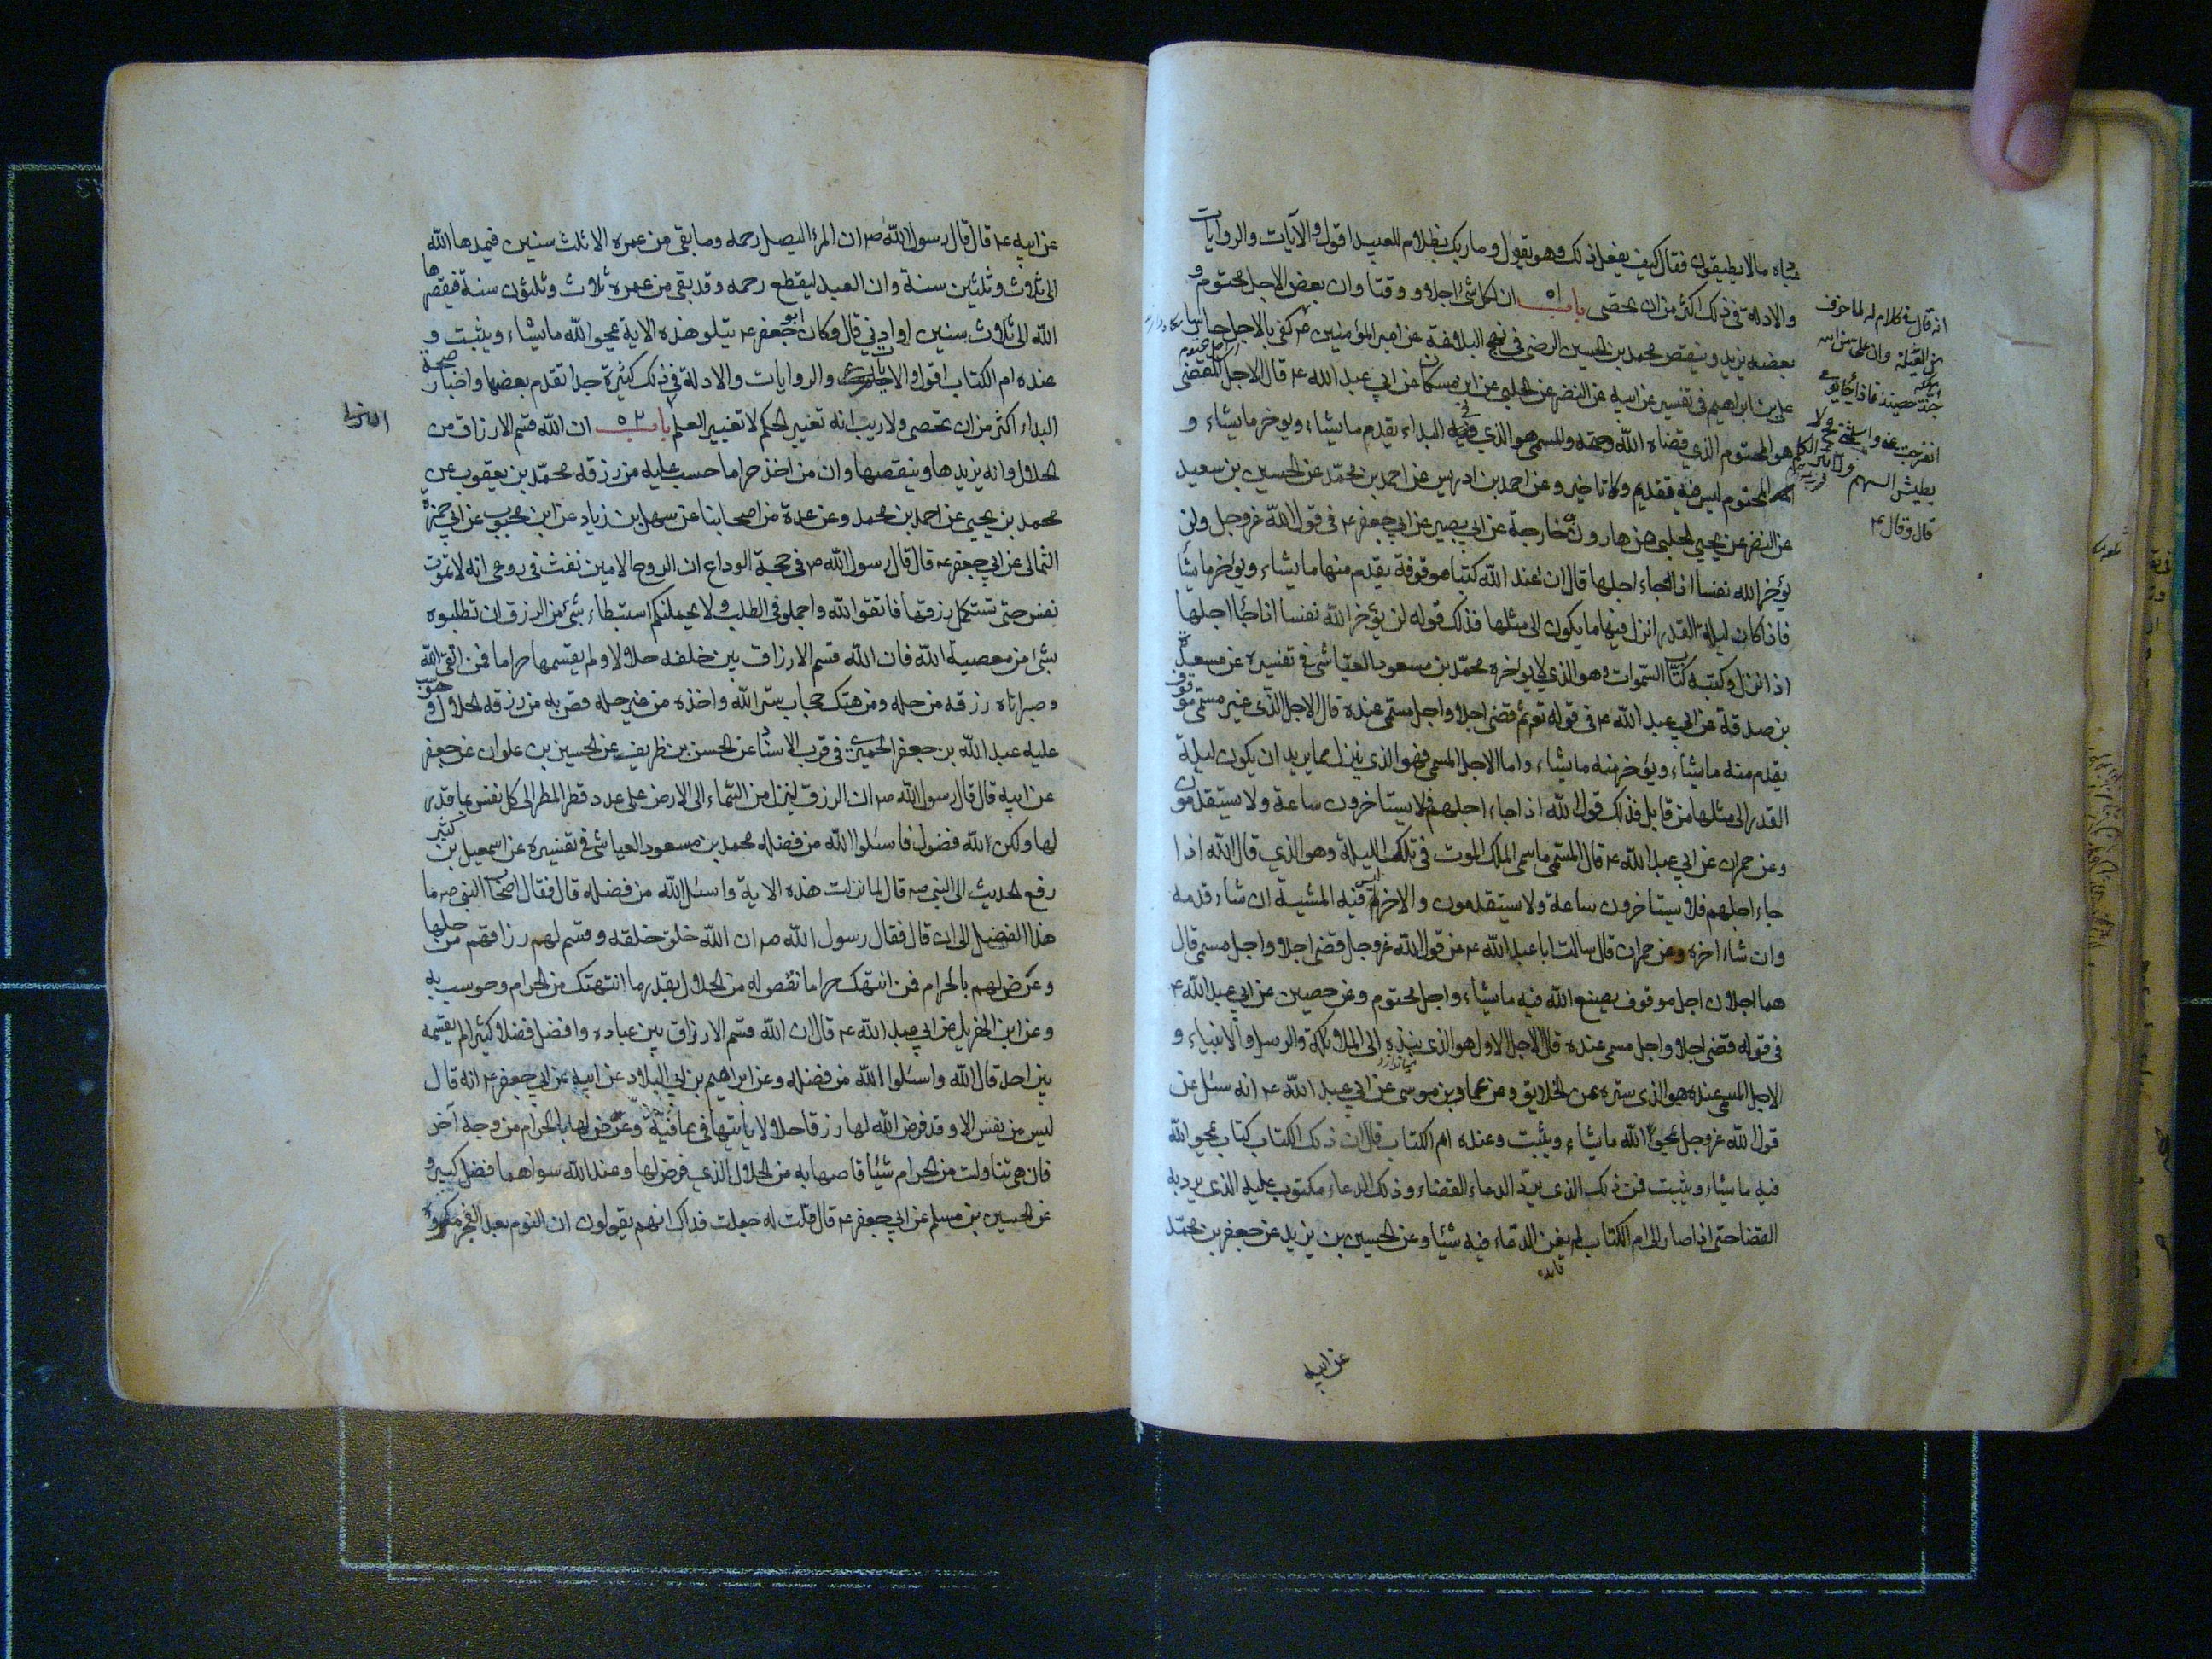 عباده ما لا يطيقون فقال كيف يفعل ذلك وهو يقول وما ربك بظلام للعبيد اقول والآيات والروايات
والادلة في ذلك اكثر من ان تحصى باب ٥١ ان لكل شئ اجلا ووقتا وان بعض الاجل محتوم و
بعضه يزيد وينقص محمد بن الحسين الرضي في نهج البلاغة عن امير المؤمنين ع كفى بالاجل حارسا
علي بن ابراهيم في تفسيره عن ابيه عن النضر عن الحلبي عن ابن مسكان عن ابي عبد الله ع قال الاجل المقضى
هو المحتوم الذي قضاه الله وحتمه والمسمى هو الذي فيه البداء يقدم ما يشاء ويوخر ما يشاء و
المحتوم ليس فيه تقديم ولا تاخير وعن احمد بن ادريس عن احمد بن محمد عن الحسين بن سعيد
عن النضر عن يحيى الحلبي عن هارون بن خارجة عن ابي بصير عن ابي جعفر ع في قول الله عز وجل ولن
يؤخر الله نفسا اذا جاء اجلها قال ان عند الله كتبا موقوفة يقدم منها ما يشاء ويؤخر ما يشاء
فاذا كان ليلة القدر انزل فيها ما يكون الى مثلها فذلك قوله لن يؤخر الله نفسا اذا جاء اجلها
اذا نزل وكتبه كتاب السموات وهو الذي لا يواخره محمد بن مسعود العياشي في تفسيره عن مسعدة
بن صدقة عن ابي عبد الله ع في قوله تع ثم قضى اجلا واجل مسمى عنده قال الاجل الذي غير مسمى موقوف
يقدم منه ما يشاء ويؤخر منه ما يشاء واما الاجل المسمى فهو الذي ينزل مما يريد ان يكون ليلة
القدر الى مثلها من قابل فذلك قول الله اذا جاء اجلهم فلا يستاخرون ساعة ولا يستقدمون
وعن حمران عن ابي عبد الله ع قال المسمى ما سمى الملك الموت في تلك الليلة وهو الذي قال الله اذا
جاء اجلهم فلا يستاخرون ساعة ولا يستقدمون والاخر له فيه المشية ان شاء قدمه
وان شاء اخره وعن حمران قال سالت ابا عبد الله ع عن قول الله عز وجل قضى اجلا واجل مسمى قال
هما اجلان اجل موقوف يصنع الله فيه ما يشاء واجل محتوم وعن حصين عن ابي عبد الله ع
في قوله قضى اجلا واجل مسمى عنده قال الاجل الاول هو الذي ينبذه الى الملائكة والرسل والانبياء و
الاجل المسمى عنده هو الذي ستره عن الخلايق وعن عمار بن موسى عن ابي عبد الله ع انه سئل عن
قول الله عز وجل يمحوا الله ما يشاء ويثبت وعنده ام الكتاب قال ان ذلك الكتاب كتاب يمحو الله
فيه ما يشاء ويثبت فمن ذلك الذي يرد الدعاء القضاء وذلك الدعاء مكتوب عليه الذي يرد به
القضا حتى اذا صار الى ام الكتاب لم يغن الدعاء فيه شيئا وعن الحسين بن يزيد عن جعفر بن محمد
عن ابيه
انه قال في كلام له لما خوف
من الغيلة وان علي من الله
جنة حصينة فاذا جاء يومي
انفرجت عنه واسلمتني فحينئذ لا
يطيش السهم ولا يبرء الكلم
قال وقال ع
عن ابيه ع قال قال رسول الله ص ان المرء ليصل رحمه وما بقى من عمره الا ثلث سنين فيمدها الله
الى ثلاث وثلثين سنة وان العبد ليقطع رحمه وقد بقى من عمره ثلاث وثلثون سنة فيقصرها
الله الى ثلاث سنين او ادنى قال وكان ابو جعفر ع يتلو هذه الاية يمحو الله ما يشاء ويثبت و
عنده ام الكتاب اقول والروايات والادلة في ذلك كثيرة جدا تقدم بعضها واخبار صحة
البداء اكثر من ان تحصى ولا ريب انه تغيير الحكم لا تغيير العلم باب ٥٢ ان الله قسم الارزاق من
الحلال وانه يزيدها وينقصها وان من اخذ حراما حسب عليه من رزقه محمد بن يعقوب عن
محمد بن يحيى عن احمد بن محمد وعن عدة من اصحابنا عن سهل بن زياد عن ابن محبوب عن ابي حمزة
الثمالي عن ابي جعفر ع قال قال رسول الله ص في حجة الوداع ان الروح الامين نفث في روعي انه لا تموت
نفس حتى تستكمل رزقها فاتقوا الله واجملوا في الطلب ولا يحملنكم استبطاء شئ من الرزق ان تطلبوه
بشئ من معصية الله فان الله قسم الارزاق بين خلقه حلالا ولم يقسمها حراما فمن اتقى الله
وصبر اتاه رزقه من حله ومن هتك حجاب ستر الله واخذه من غير حله قص به من رزقه الحلال وحوسب
عليه عبد الله بن جعفر الحميري في قرب الاسناد عن الحسن بن ظريف عن الحسين بن علوان عن جعفر
عن ابيه قال قال رسول الله ص ان الرزق لينزل من السماء الى الارض على عدد قطر المطر الى كل نفس بما قدر
لها ولكن لله فضول فاسئلوا الله من فضله محمد بن مسعود العياشي في تفسيره عن اسمعيل بن كثير
رفع الحديث الى النبي ص قال لما نزلت هذه الاية واسئلوا الله من فضله قال فقال اصحاب النبي ص ما
هذا الفضل الى ان قال فقال رسول الله ص ان الله خلق خلقه وقسم لهم رزاقهم من حلها
وعرض لهم بالحرام فمن انتهك حراما نقص له من الحلال بقدر ما انتهك من الحرام وحوسب به
وعن ابن الهذيل عن ابي عبد الله ع قال ان الله قسم الارزاق بين عباده وافضل فضلا كثيرا لم يقسمه
بين احد قال الله واسئلوا الله من فضله وعن ابراهيم بن ابي البلاد عن ابيه عن ابي جعفر ع انه قال
ليس من نفس الا وقد فرض الله لها رزقا حلالا يأتيها في عافية وعرض لها بالحرام من وجه آخر
فان هي تناولت من الحرام شيئا قاصها به من الحلال الذي فرض لها وعند الله سواهما فضل كبير و
عن الحسين بن مسلم عن ابي جعفر ع قال قلت له جعلت فداك انهم يقولون ان النوم بعد الفجر مكروه